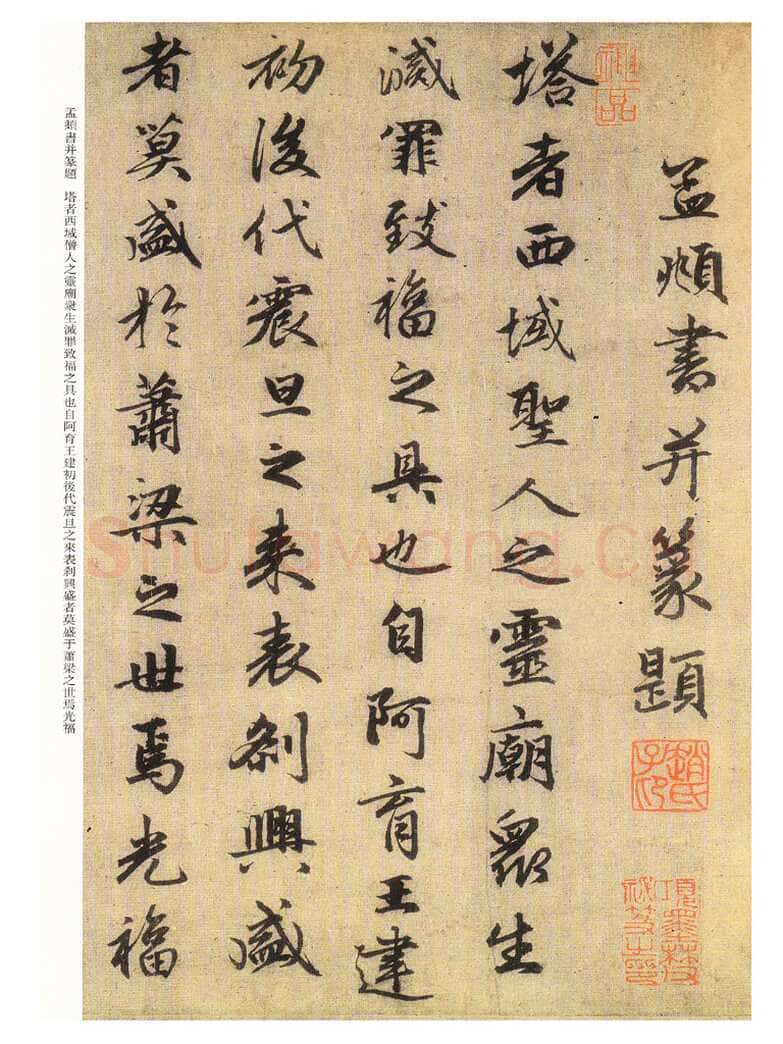 孟頫書并篆題
塔者西域聖人之靈廟衆生
滅罪致福之具也自阿育王建
初後代震旦之来表刹興盛
者莫盛於蕭梁之世焉光福
趙氏子印
神品
孟頫書并篆題 塔者西域僧人之靈廟衆生滅罪致福之具也自阿育王建初後代震旦之來表刹興盛者莫盛于蕭梁之世焉光福
shufawang.cn